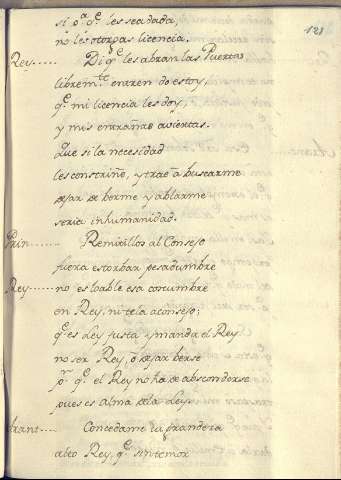 121
si p.ª q.ᵉ les sea dada,
no les otorgas licencia.
Rey...... Di q.ᵉ les abran las Puertas
librem.ᵗᵉ entren do estoy,
q.ᵉ mi licencia les doy,
y mis entrañas aviertas.
Que si la necesidad
les constriñe, y trae â buscarme
dejar de berme y ablarme
seria inhumanidad.
Prin....... Remitillos al Consejo
fuera estorbar pesadumbre
Rey...... no es loable esa costumbre
en Rey, ni te la aconsejo;
q.ᵉ es Ley justa y manda el Rey
no ser Rey, ô dejar berse
p.ʳ q.ᵉ el Rey no ha de absconderse
pues es alma de la Ley.
Concedame tu grandeza
alto Rey, q.ᵉ sin temor